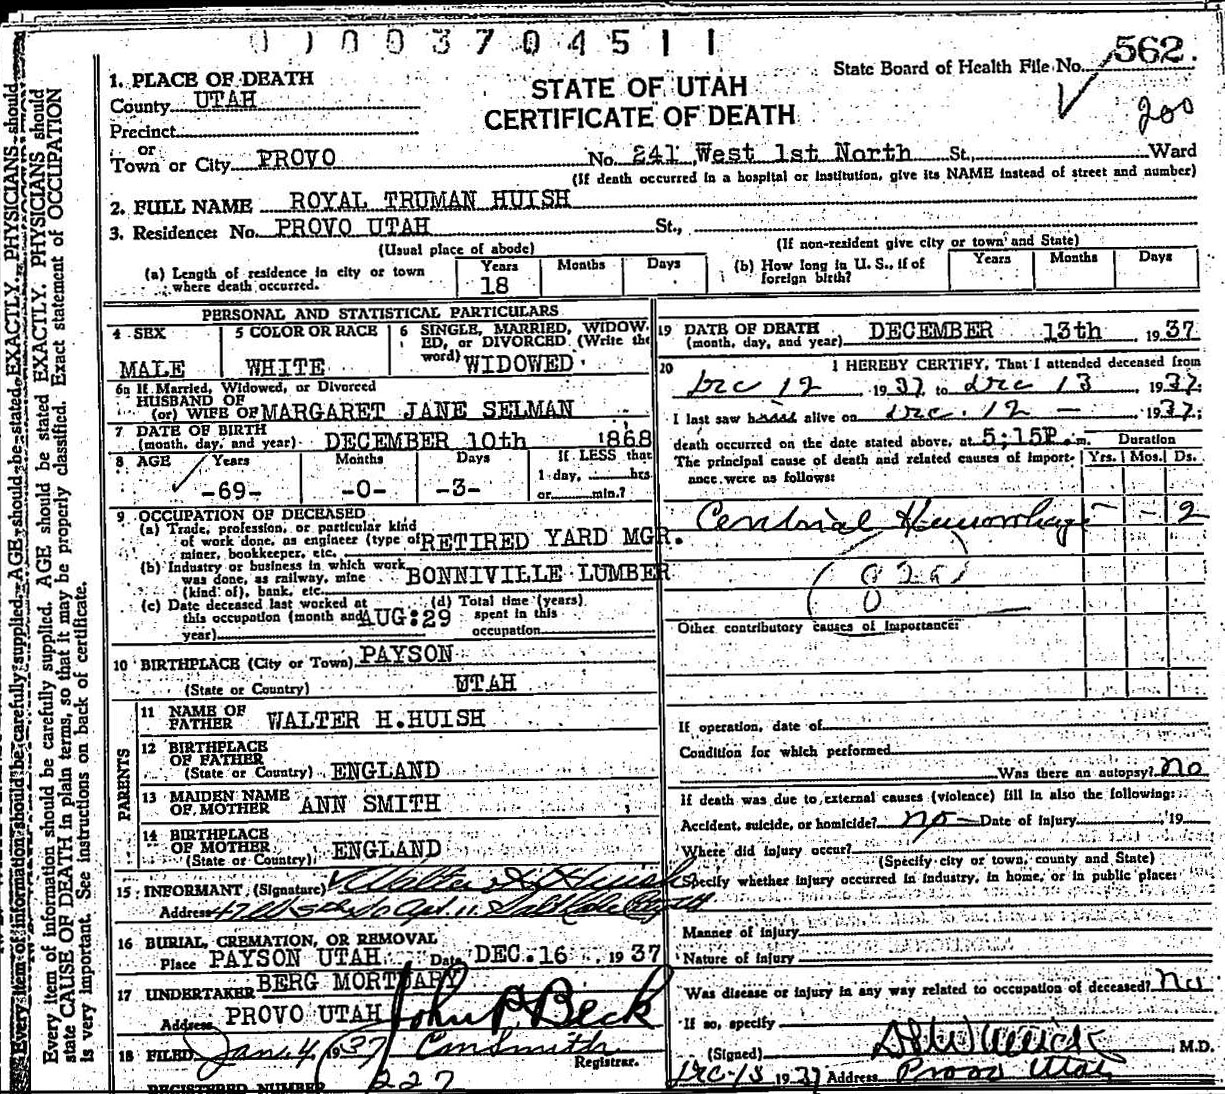 0 1 0 0 3 7 0 4 5 1 1
STATE OF UTAH
CERTIFICATE OF DEATH
State Board of Health File No. 562.
200
1. PLACE OF DEATH
County UTAH
Precinct
or
Town or City PROVO No. 241 West 1st North St., Ward
(If death occurred in a hospital or institution, give its NAME instead of street and number)
2. FULL NAME ROYAL TRUMAN HUISH
3. Residence: No. PROVO UTAH St.,
(Usual place of abode) (If non-resident give city or town and State)
(a) Length of residence in city or town where death occurred. Years 18 Months Days
(b) How long in U. S., if of foreign birth? Years Months Days
PERSONAL AND STATISTICAL PARTICULARS
4 SEX MALE
5 COLOR OR RACE WHITE
6 SINGLE, MARRIED, WIDOW-
ED, or DIVORCED (Write the
word) WIDOWED
6a If Married, Widowed, or Divorced
HUSBAND OF
(or) WIFE OF MARGARET JANE SELMAN
7 DATE OF BIRTH
(month, day, and year) DECEMBER 10th 1868
8 AGE Years Months Days If LESS that
1 day, hrs.
-69- -0- -3- or min.?
9 OCCUPATION OF DECEASED
(a) Trade, profession, or particular kind
of work done, as engineer (type of RETIRED YARD MGR.
miner, bookkeeper, etc.
(b) Industry or business in which work
was done, as railway, mine BONNIVILLE LUMBER
(kind of), bank, etc.
(c) Date deceased last worked at
this occupation (month and AUG:29
year)
(d) Total time (years)
spent in this
occupation
10 BIRTHPLACE (City or Town) PAYSON
(State or Country) UTAH
PARENTS
11 NAME OF
FATHER WALTER H.HUISH
12 BIRTHPLACE
OF FATHER
(State or Country) ENGLAND
13 MAIDEN NAME
OF MOTHER ANN SMITH
14 BIRTHPLACE
OF MOTHER
(State or Country) ENGLAND
15 INFORMANT (Signature) Walter H Huish
Address
16 BURIAL, CREMATION, OR REMOVAL
Place PAYSON UTAH Date DEC.16 1937
17 UNDERTAKER BERG MORTUARY
Address PROVO UTAH John P Beck
18 FILED Jan. 4 1937 Registrar.
REGISTERED NUMBER 227
19 DATE OF DEATH
(month, day, and year) DECEMBER 13th 1937
20 I HEREBY CERTIFY, That I attended deceased from
Dec 12 1937 to Dec 13 1937
I last saw alive on Dec. 12 - 1937;
death occurred on the date stated above, at 5:15P.m. Duration
The principal cause of death and related causes of import- Yrs. Mos. Ds.
ance were as follows:
Hemorrhage - - 2
Other contributory causes of importance:
If operation, date of
Condition for which performed
Was there an autopsy? no
If death was due to external causes (violence) fill in also the following:
Accident, suicide, or homicide? no Date of injury , 19
Where did injury occur?
(Specify city or town, county and State)
Specify whether injury occurred in industry, in home, or in public place:
Manner of injury
Nature of injury
Was disease or injury in any way related to occupation of deceased? No
If so, specify
(Signed) , M.D.
1937 Address Provo Utah
Every item of information should be carefully supplied. AGE should be stated EXACTLY. PHYSICIANS should
Every item of information should be carefully supplied. AGE should be stated EXACTLY. PHYSICIANS should
state CAUSE OF DEATH in plain terms, so that it may be properly classified. Exact statement of OCCUPATION
is very important. See instructions on back of certificate.